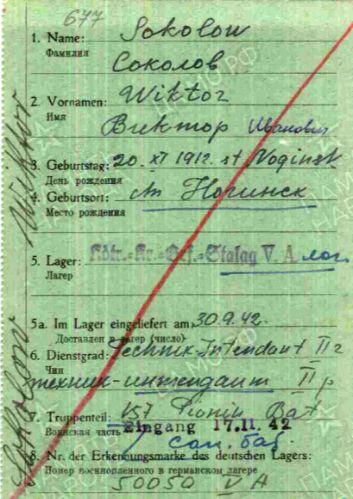 677
1. Name: Sokolow
Фамилия Соколов
2. Vornamen: Wiktor
Имя Виктор Иванович
3. Geburtstag: 20. XI 1912. st. Noginsk
День рождения
4. Geburtsort: ст Ногинск
Место рождения
5. Lager: Kdtr.-Kr.-Gef.-Stalag V. A
Лагер
5a. Im Lager eingeliefert am 30.9.42.
Доставлен в лагер (число)
6. Dienstgrad: Technik-Intendant II r
Чин
техник-интендант II р
7. Truppenteil: Pionir Bat
Воинская часть Eingang 17. 11. 42
сап. бат
8. Nr. der Erkennungsmarke des deutschen Lagers:
Номер военнопленного в германском лагере
50050 V A
Sokolow Wiktor